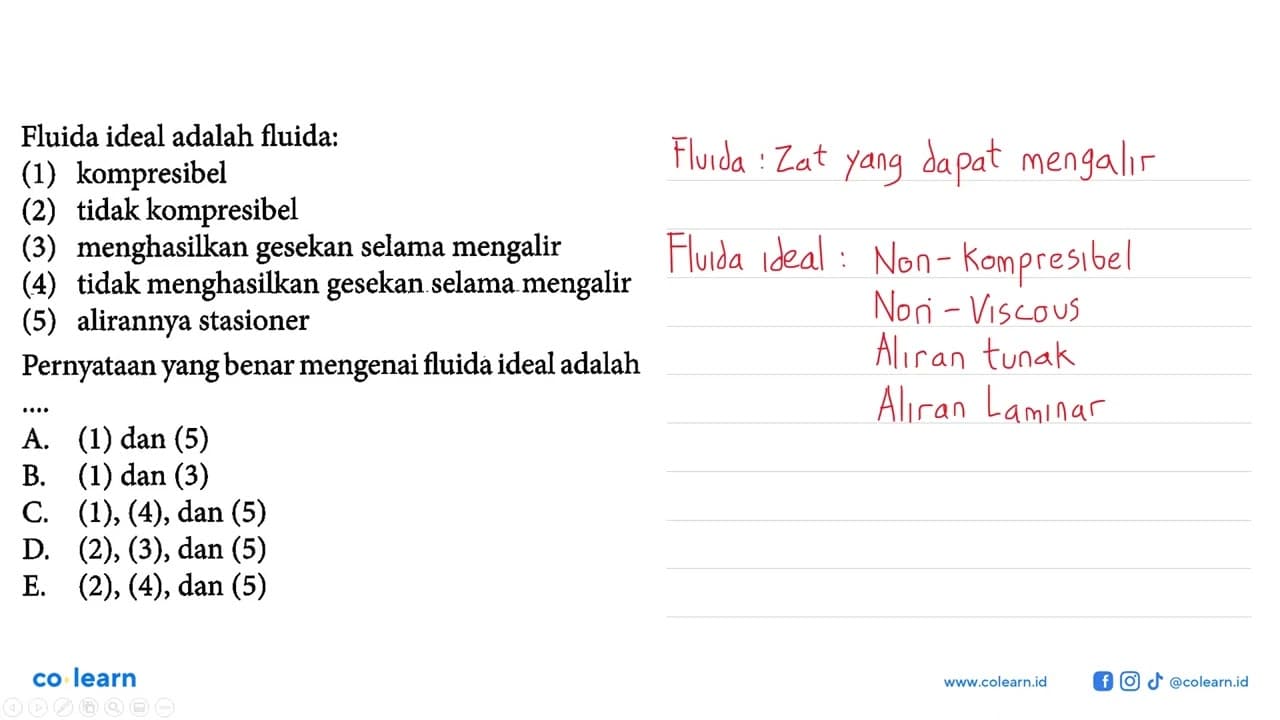 Fluida ideal adalah fluida:
(1) kompresibel
(2) tidak kompresibel
(3) menghasilkan gesekan selama mengalir
(4) tidak menghasilkan gesekan selama mengalir
(5) alirannya stasioner
Pernyataan yang benar mengenai fluida ideal adalah
....
A. (1) dan (5)
B. (1) dan (3)
C. (1), (4), dan (5)
D. (2), (3), dan (5)
E. (2), (4), dan (5)
Fluida : Zat yang dapat mengalir
Fluida ideal : Non-Kompresibel
Non-Viscous
Aliran tunak
Aliran Laminar
co learn
www.colearn.id
@colearn.id